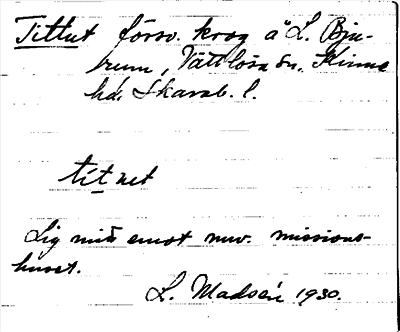 Tittut försv. krog å L. Bju-
rum, Vättlösa sn. Kinne
hd. Skarab. l.
títnet
Låg mitt emot nuv. missions-
huset.
L. Madsén 1930.